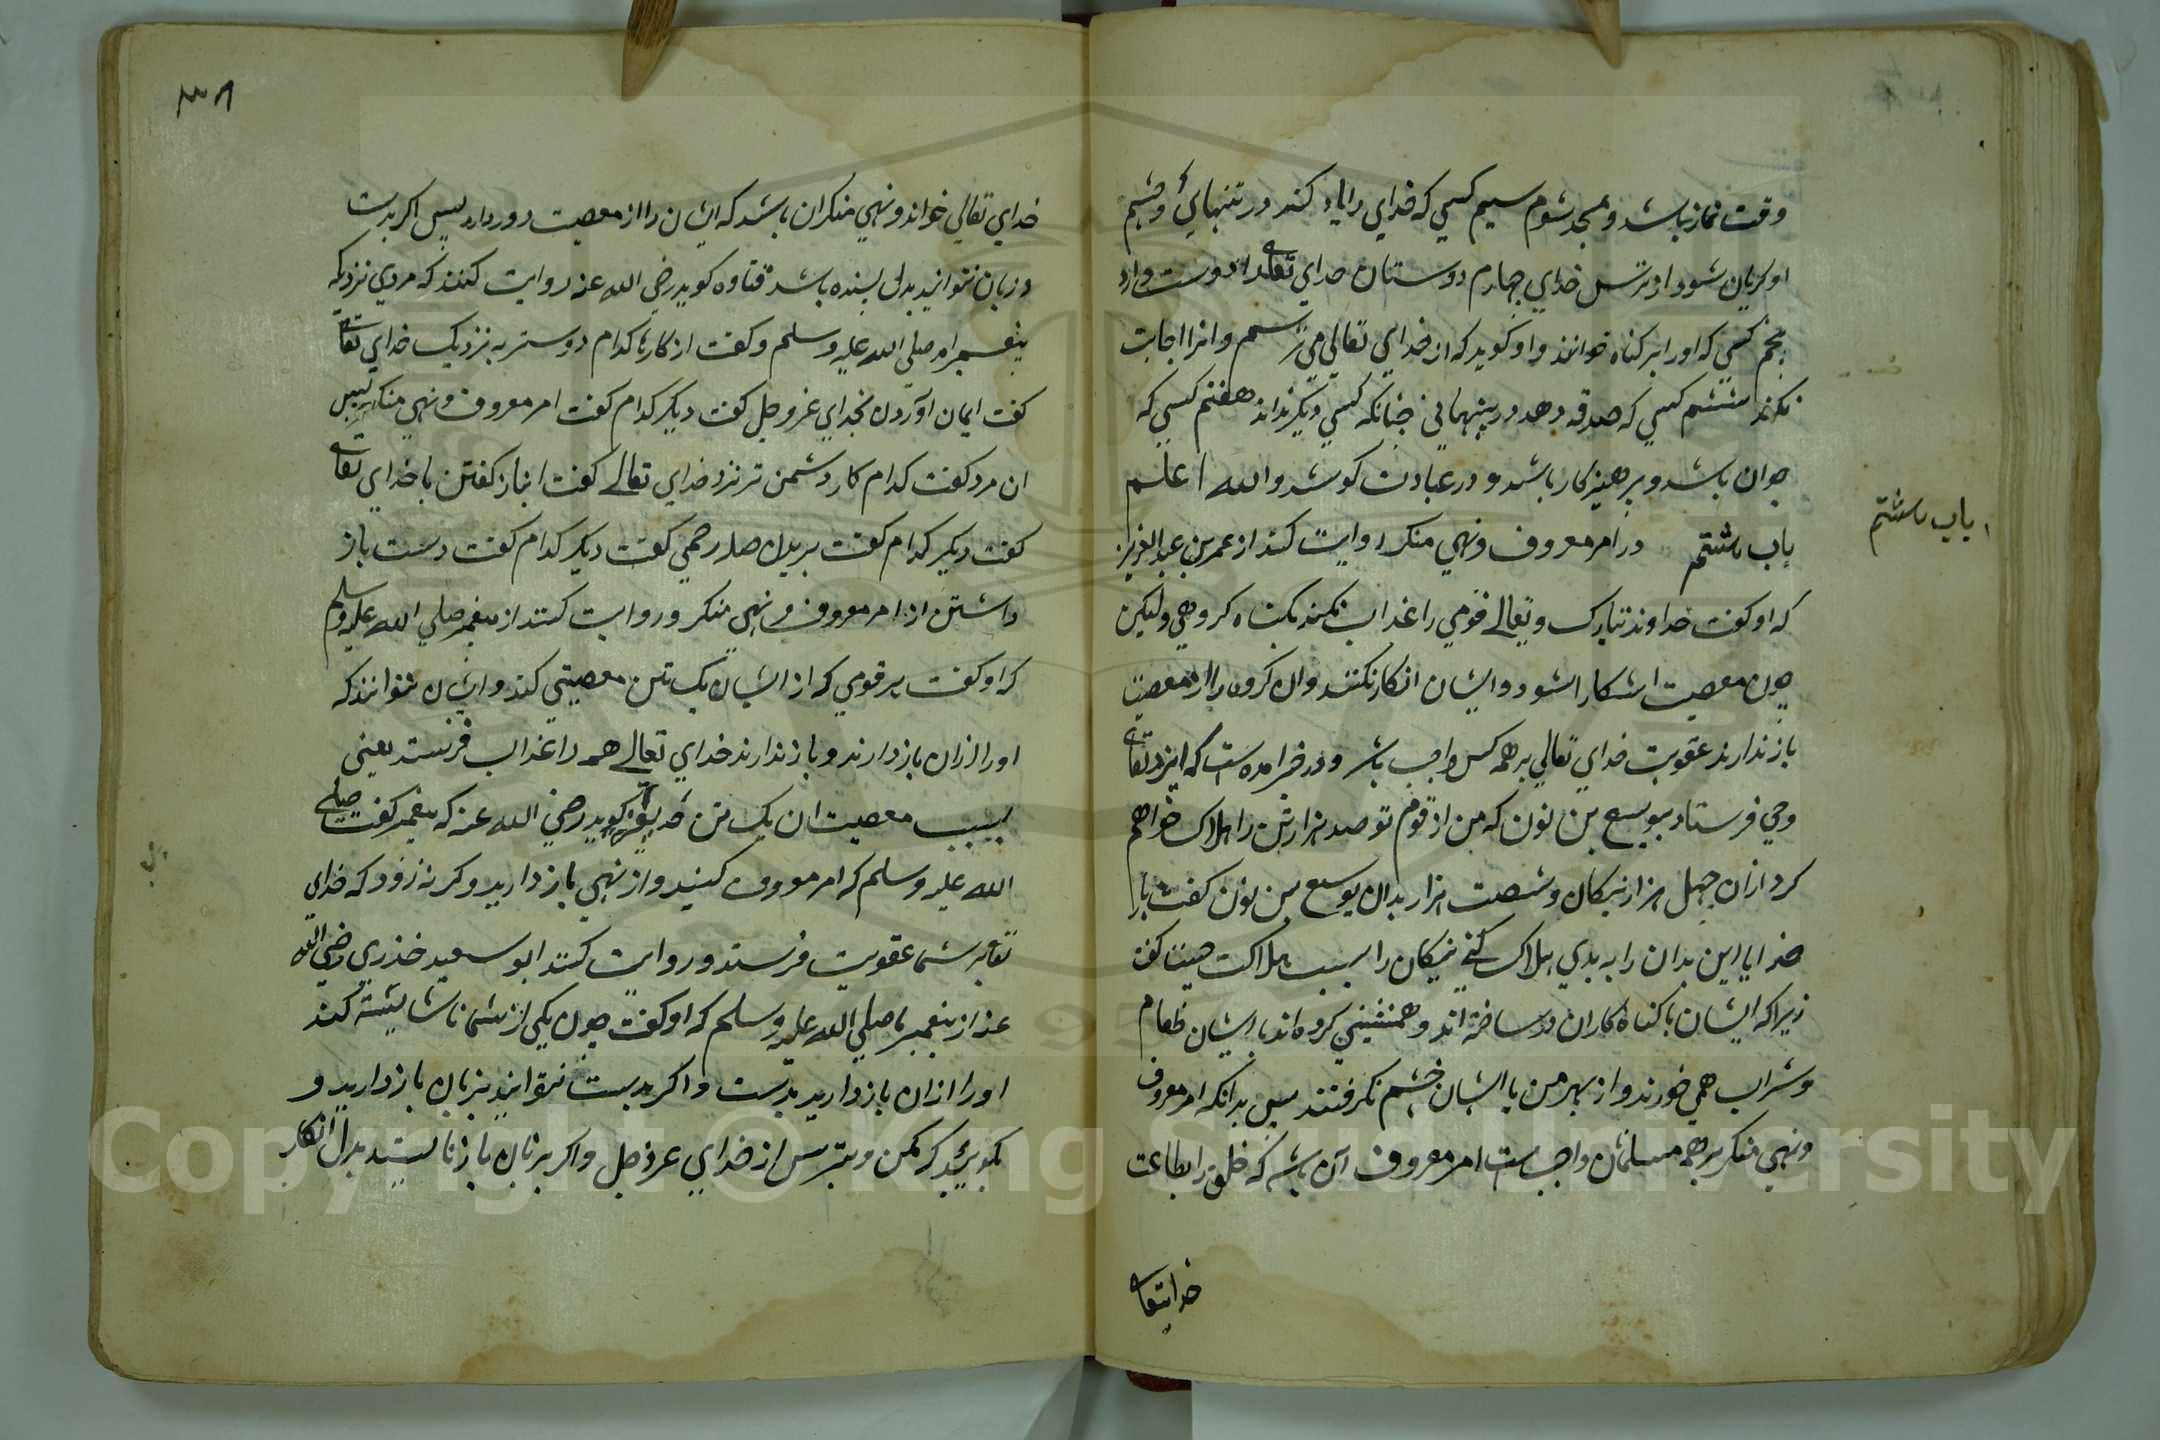 وقت نماز باشد و مسجد شوم سیم کسی که خدای را یاد کند در تنهائی و چشم
او کریان شود از ترس خدای چهارم دوستان خدای تعالی را دوست دارد
پنجم کسی که اورا بر کناه خوانند و او کوید که از خدای تعالی می ترسم و انرا اجابت
نکند ششم کسی که صدقه دهد در پنهانی چنانکه کسی دیگر نداند هفتم کسی که
جوان باشد و پرهیزکار باشد و در عبادت کوشد والله اعلم
باب هشتم
باب هشتم در امر معروف و نهی منکر روایت کنند از عمر بن عبد العزیز
که او کفت خداوند تبارک و تعالی قومی را عذاب نکند بکناه کروهی ولیکن
چون معصیت اشکارا شود و ایشان انکار نکنند وان کروه را از معصیت
باز ندارند عقوبت خدای تعالی بر همه کس واجب باشد و در خبر امده ست که ایزد تعالی
وحی فرستاد بیوسع بن نون که من از قوم تو صد هزار تن را هلاک خواهم
کرد ازان چهل هزار نیکان و شصت هزار بدان یوسع بن نون کفت بار
خدایا این بدان را به بدی هلاک کنی نیکان را سبب هلاکت چیست کفت
زیرا که ایشان با کناه کاران در ساخته اند و همنشینی کرده اند با ایشان طعام
و شراب همی خورند و از بهر من با ایشان خشم نکرفتند پس بدانکه امر معروف
و نهی منکر بر همه مسلمانان واجب است امر معروف آن باشد که خلق را بطاعت
خدایتعالی
۳۸
خدای تعالی خواند و نهی منکر ان باشد که ایشان را از معصیت دور دارد پس اکر بدست
و زبان نتوانید بدل بسنده باشد قتاده کوید رضی الله عنه روایت کنند که مردی نزدیک
پیغمبر امد صلی الله علیه وسلم و کفت از کارها کدام دوستر به نزدیک خدای تعالی
کفت ایمان آوردن بخدای عزوجل کفت دیکر کدام کفت امر معروف و نهی منکر پس
ان مرد کفت کدام کار دشمن تر نزد خدای تعالی کفت انباز کفتن با خدای تعالی
کفت دیکر کدام کفت بریدن صله رحمی کفت دیکر کدام کفت دست باز
داشتن از امر معروف و نهی منکر و روایت کنند از پیغمبر صلی الله علیه وسلم
که او کفت هر قومی که از ایشان یک تن معصیتی کند و ایشان نتوانند که
اورا ازان باز دارند و باز ندارند خدای تعالی همه را عذاب فرستد یعنی
بسبب معصیت ان یک تن حذیفه کوید رضی الله عنه که پیغمبر کفت صلی
الله علیه وسلم که امر معروف کنید و از نهی باز دارید و کر نه زود که خدای
تعالی بر شما عقوبت فرستد و روایت کنند ابو سعید خذری رضی الله
عنه از پیغمبر صلی الله علیه وسلم که او کفت چون یکی از شما ناشایسته کند
اورا ازان باز دارید بدست و اکر بدست نتوانید بزبان باز دارید و
بکوئید که مکن و بترس از خدای عزوجل و اکر بزبان باز نایستید بدل انکار
Copyright © King Saud University